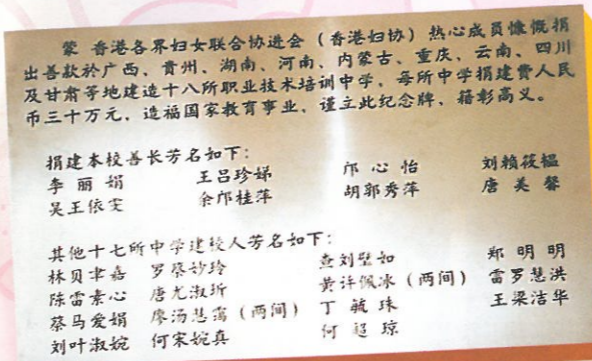 蒙 香港各界妇女联合协进会(香港妇协)热心成员慷慨捐
出善款於广西、贵州、湖南、河南、内蒙古、重庆、云南、四川
及甘肃等地建造十八所职业技术培训中学,每所中学捐建费人民
币三十万元,造福国家教育事业,谨立此纪念牌,籍彰高义。
捐建本校善长芳名如下:
李丽娟 王吕珍娣 邝心怡 刘赖筱韫
吴王依雯 余邝桂萍 胡郭秀萍 唐美馨
其他十七所中学建校人芳名如下:
林贝聿嘉 罗蔡妙玲 查刘璧如 郑明明
陈雷素心 唐尤淑圻 黄许佩冰(两间) 雷罗慧洪
蔡马爱娟 廖汤慧霭(两间) 丁毓珠 王梁洁华
刘叶淑婉 何宋婉真 何超琼